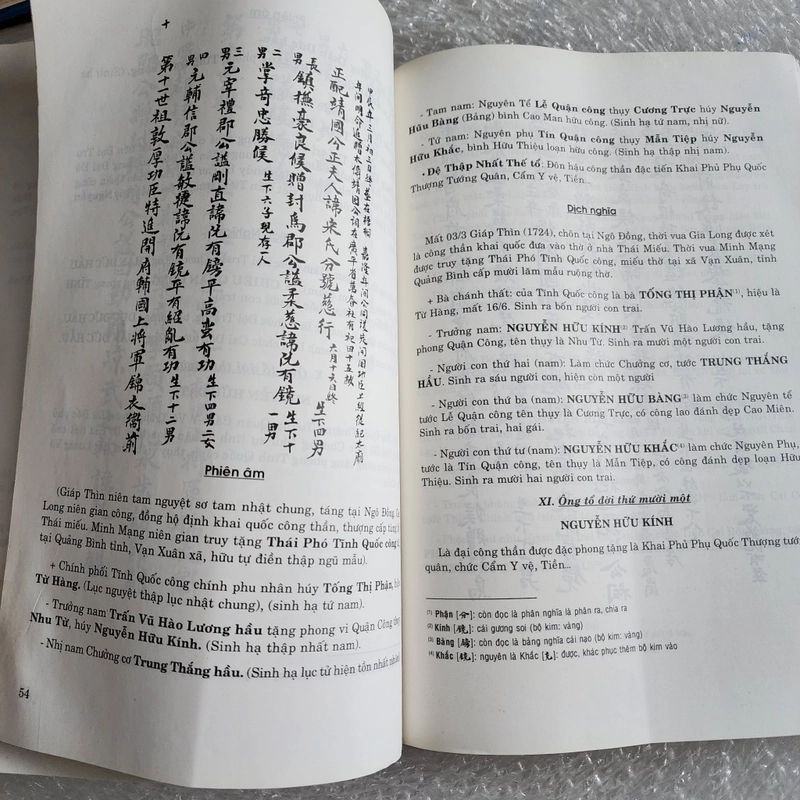 +
正配靖國公正夫人諱宋氏分號慈行 六月十六日終 生下四男
長男鎮撫豪良侯贈封為郡公謚柔慈諱阮有鏡 生下十一男
二男掌奇忠勝侯 生下六子現存一人
三男元宰禮郡公謚剛直諱阮有鎊平高蠻有功 生下四男二女
四男元輔信郡公謚敏捷諱阮有鏡平有紹亂有功 生下十二男
第十一世祖敦厚功臣特進開府輔國上將軍錦衣衛前
Phiên âm
(Giáp Thìn niên tam nguyệt sơ tam nhật chung, táng tại Ngô Đồng
Long niên gian công, đồng hộ định khai quốc công thần, thượng cấp tùng
Thái miếu. Minh Mạng niên gian truy tặng Thái Phó Tĩnh Quốc công
tại Quảng Bình tỉnh, Vạn Xuân xã, hữu tự điền thập ngũ mẫu).
+ Chính phối Tĩnh Quốc công chính phu nhân húy Tống Thị Phận,
Từ Hàng. (Lục nguyệt thập lục nhật chung), (sinh hạ tứ nam).
- Trưởng nam Trấn Vũ Hào Lương hầu tặng phong vi Quận Công
Nhu Từ, húy Nguyễn Hữu Kính. (Sinh hạ thập nhất nam).
- Nhị nam Chưởng cơ Trung Thắng hầu. (Sinh hạ lục tử hiện tồn nhất
54
- Tam nam: Nguyên Tể Lễ Quận công thụy Cương Trực húy Nguyễn
Hữu Bàng (Bảng) bình Cao Man hữu công. (Sinh hạ tứ nam, nhị nữ).
- Tứ nam: Nguyên phụ Tín Quận công thụy Mẫn Tiệp húy Nguyễn
Hữu Khắc, bình Hữu Thiệu loạn hữu công. (Sinh hạ thập nhị nam).
. Đệ Thập Nhất Thế tổ: Đôn hậu công thần đặc tiến Khai Phủ Phụ Quốc
Thượng Tướng Quân, Cẩm Y vệ, Tiền...
Dịch nghĩa
Mất 03/3 Giáp Thìn (1724), chôn tại Ngô Đồng, thời vua Gia Long được xét
là công thần khai quốc đưa vào thờ ở nhà Thái Miếu. Thời vua Minh Mạng
được truy tặng Thái Phó Tĩnh Quốc công, miếu thờ tại xã Vạn Xuân, tỉnh
Quảng Bình cấp mười lăm mẫu ruộng thờ.
+ Bà chánh thất: của Tĩnh Quốc công là bà TỐNG THỊ PHẬN(1), hiệu là
Từ Hàng, mất 16/6. Sinh ra bốn người con trai.
- Trưởng nam: NGUYỄN HỮU KÍNH(2) Trấn Vũ Hào Lương hầu, tặng
phong Quận Công, tên thụy là Nhu Từ. Sinh ra mười một người con trai.
- Người con thứ hai (nam): Làm chức Chưởng cơ, tước TRUNG THẮNG
HẦU. Sinh ra sáu người con, hiện còn một người
- Người con thứ ba (nam): NGUYỄN HỮU BÀNG(3) làm chức Nguyên tể
tước Lễ Quận công tên thụy là Cương Trực, có công lao đánh dẹp Cao Miên.
Sinh ra bốn trai, hai gái.
- Người con thứ tư (nam): NGUYỄN HỮU KHẮC(4) làm chức Nguyên Phụ,
tước là Tín Quận công, tên thụy là Mẫn Tiệp, có công đánh dẹp loạn Hữu
Thiệu. Sinh ra mười hai người con trai.
XI. Ông tổ đời thứ mười một
NGUYỄN HỮU KÍNH
Là đại công thần được đặc phong tặng là Khai Phủ Phụ Quốc Thượng tướng
quân, chức Cẩm Y vệ, Tiền...
(1) Phận [分]: còn đọc là phân nghĩa là phân ra, chia ra
(2) Kính [鏡]: cái gương soi (bộ kim: vàng)
(3) Bàng [鎊]: còn đọc là bảng nghĩa cái nạo (bộ kim: vàng)
(4) Khắc: nguyên là Khắc [克]: được, khác phục thêm bộ kim vào